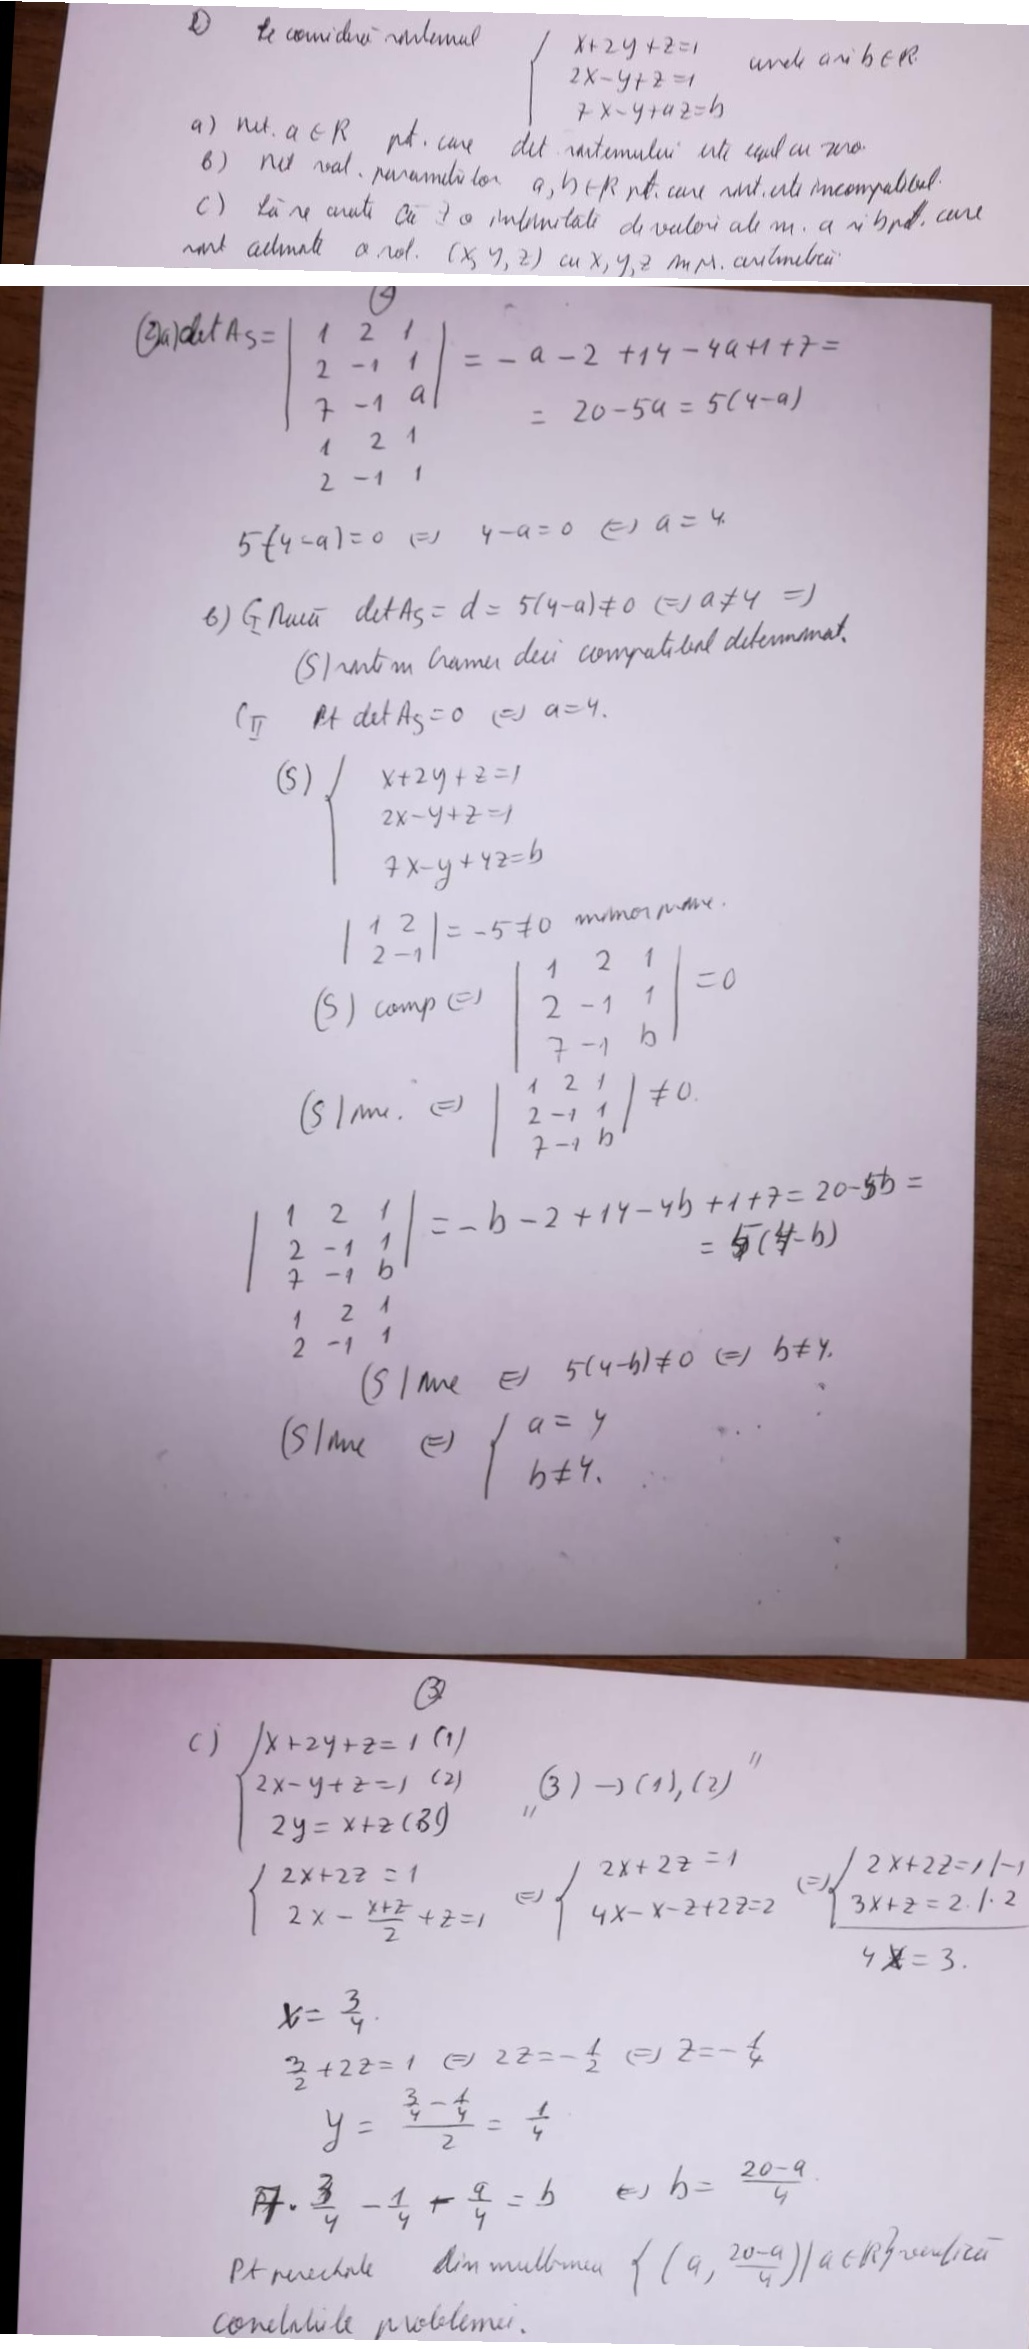 2) Se consideră sistemul { x+2y+z=1
2x-y+z=1 unde a și b∈R.
7x-y+az=b
a) Det. a∈R pt. care det sistemului este egal cu zero.
b) Det val. parametrilor a, b∈R pt. care sist. este incompatibil.
c) Să se arate că ∃ o infinitate de valori ale a și b pt. care
sist admite o sol. (x, y, z) cu x, y, z în pr. aritmetică
2
(2)a) det As = | 1 2 1
2 -1 1
7 -1 a | = -a-2+14-4a+1+7=
= 20-5a = 5(4-a)
1 2 1
2 -1 1
5(4-a)=0 ⇔ 4-a=0 ⇔ a=4.
b) C I Dacă det As = d = 5(4-a)≠0 ⇔ a≠4 ⇒
(S) sistem Cramer deci compatibil determinat.
C II Pt det As=0 ⇔ a=4.
(S) { x+2y+z=1
2x-y+z=1
7x-y+4z=b
| 1 2
2 -1 | = -5≠0 minor princ.
(S) comp ⇔ | 1 2 1
2 -1 1
7 -1 b | =0
(S) inc. ⇔ | 1 2 1
2 -1 1
7 -1 b | ≠0.
| 1 2 1
2 -1 1
7 -1 b | = -b-2+14-4b+1+7=20-5b=
= 5(4-b)
1 2 1
2 -1 1
(S) inc ⇔ 5(4-b)≠0 ⇔ b≠4.
(S) inc ⇔ { a=4
b≠4.
3
c) { x+2y+z=1 (1)
2x-y+z=1 (2)
2y=x+z (3)
"(3)→(1),(2)"
{ 2x+2z=1
2x - (x+z)/2 + z=1 ⇔ { 2x+2z=1
4x-x-z+2z=2 ⇔ { 2x+2z=1 /·-1
3x+z=2. /·2
4x=3.
x= 3/4.
3/2+2z=1 ⇔ 2z=-1/2 ⇔ z=-1/4
y = (3/4 - 1/4)/2 = 1/4
7· 3/4 - 1/4 - a/4 = b ⇔ b= (20-a)/4.
Pt perechile din mulțimea {(a, (20-a)/4) | a∈R} verifică
condițiile problemei.